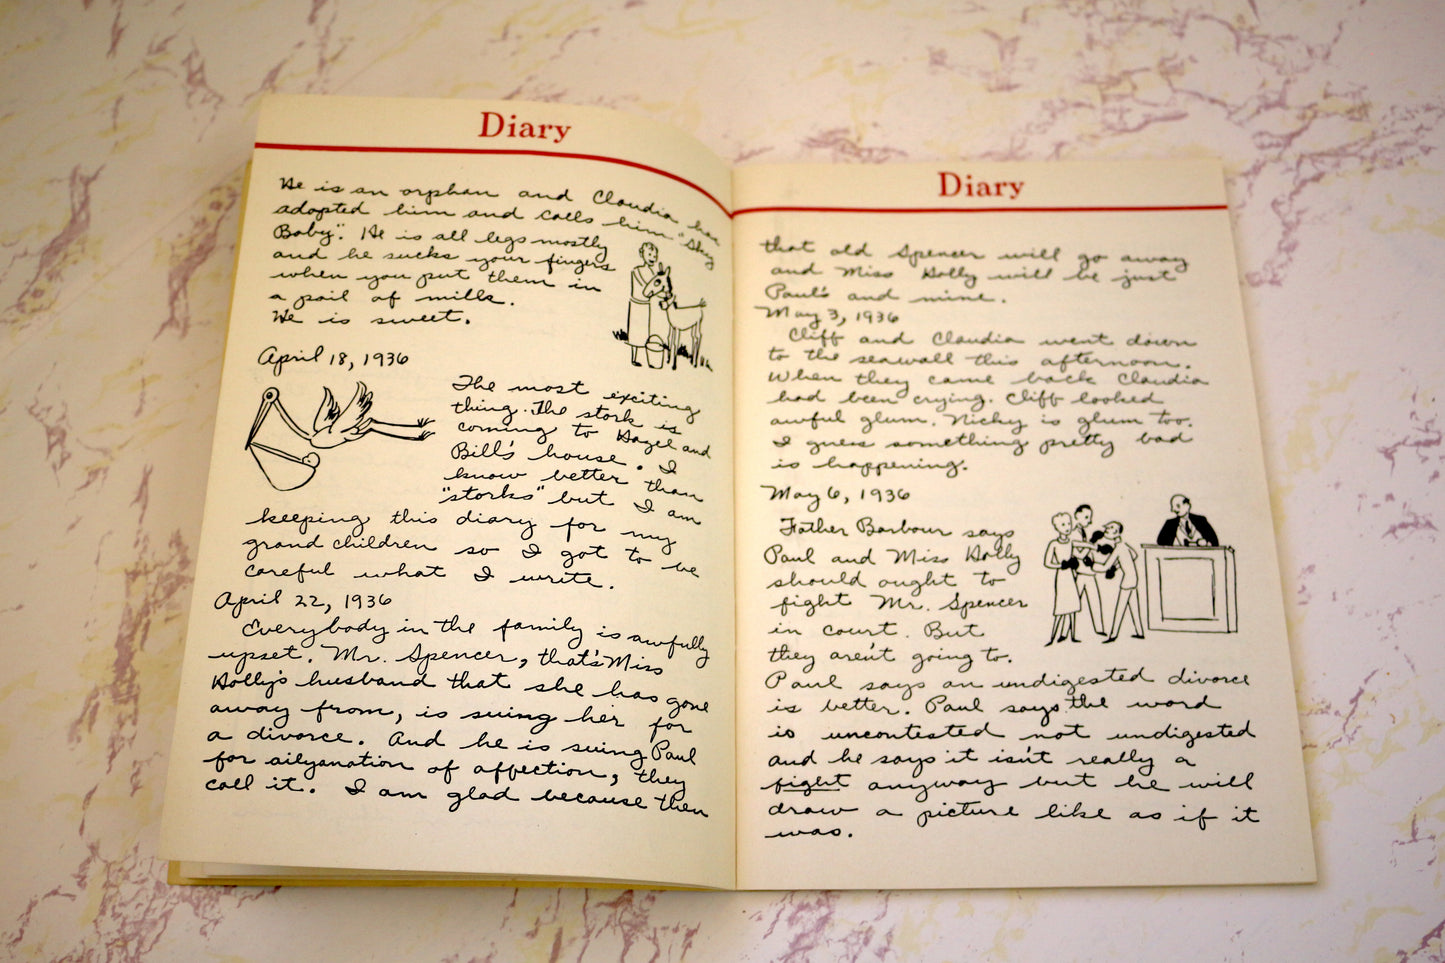 Diary
He is an orphan and Claudia has
adopted him and calls him "Shy
Baby". He is all legs mostly
and he sucks your fingers
when you put them in
a pail of milk.
He is sweet.
April 18, 1936
The most exciting
thing. The stork is
coming to Hazel and
Bill's house. I
know better than
"storks" but I am
keeping this diary for my
grand children so I got to be
careful what I write.
April 22, 1936
Everybody in the family is awfully
upset. Mr. Spencer, that's Miss
Holly's husband that she has gone
away from, is suing her for
a divorce. And he is suing Paul
for ailyanation of affection, they
call it. I am glad because then
Diary
that old Spencer will go away
and Miss Holly will be just
Paul's and mine.
May 3, 1936
Cliff and Claudia went down
to the seawall this afternoon.
When they came back Claudia
had been crying. Cliff looked
awful glum. Nicky is glum too.
I guess something pretty bad
is happening.
May 6, 1936
Father Barbour says
Paul and Miss Holly
should ought to
fight Mr. Spencer
in court. But
they aren't going to.
Paul says an undigested divorce
is better. Paul says the word
is uncontested not undigested
and he says it isn't really a
fight anyway but he will
draw a picture like as if it
was.